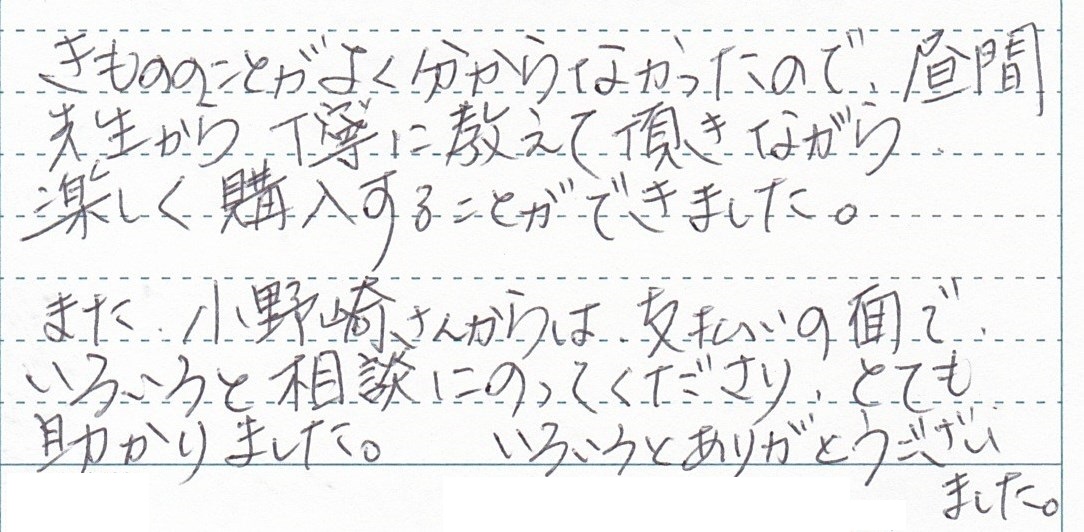 きもののことがよく分からなかったので、昼間
先生から丁寧に教えて頂きながら、
楽しく購入することができました。
また、小野崎さんからは、支払いの面で、
いろいろと相談にのってくださり、とても
助かりました。 いろいろとありがとうござい
ました。